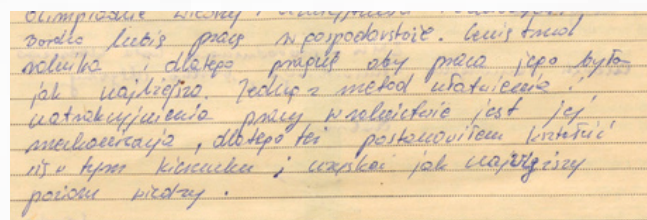 olimpiadzie wiedzy i umiejętności
bardzo lubię pracę w gospodarstwie. Cenię trud
rolnika i dlatego pragnę aby praca jego była
jak najlżejsza. Jedną z metod ułatwienia i
uatrakcyjnienia pracy w rolnictwie jest jej
mechanizacja, dlatego też postanowiłem kształcić
się w tym kierunku i uzyskać jak najwyższy
poziom wiedzy.